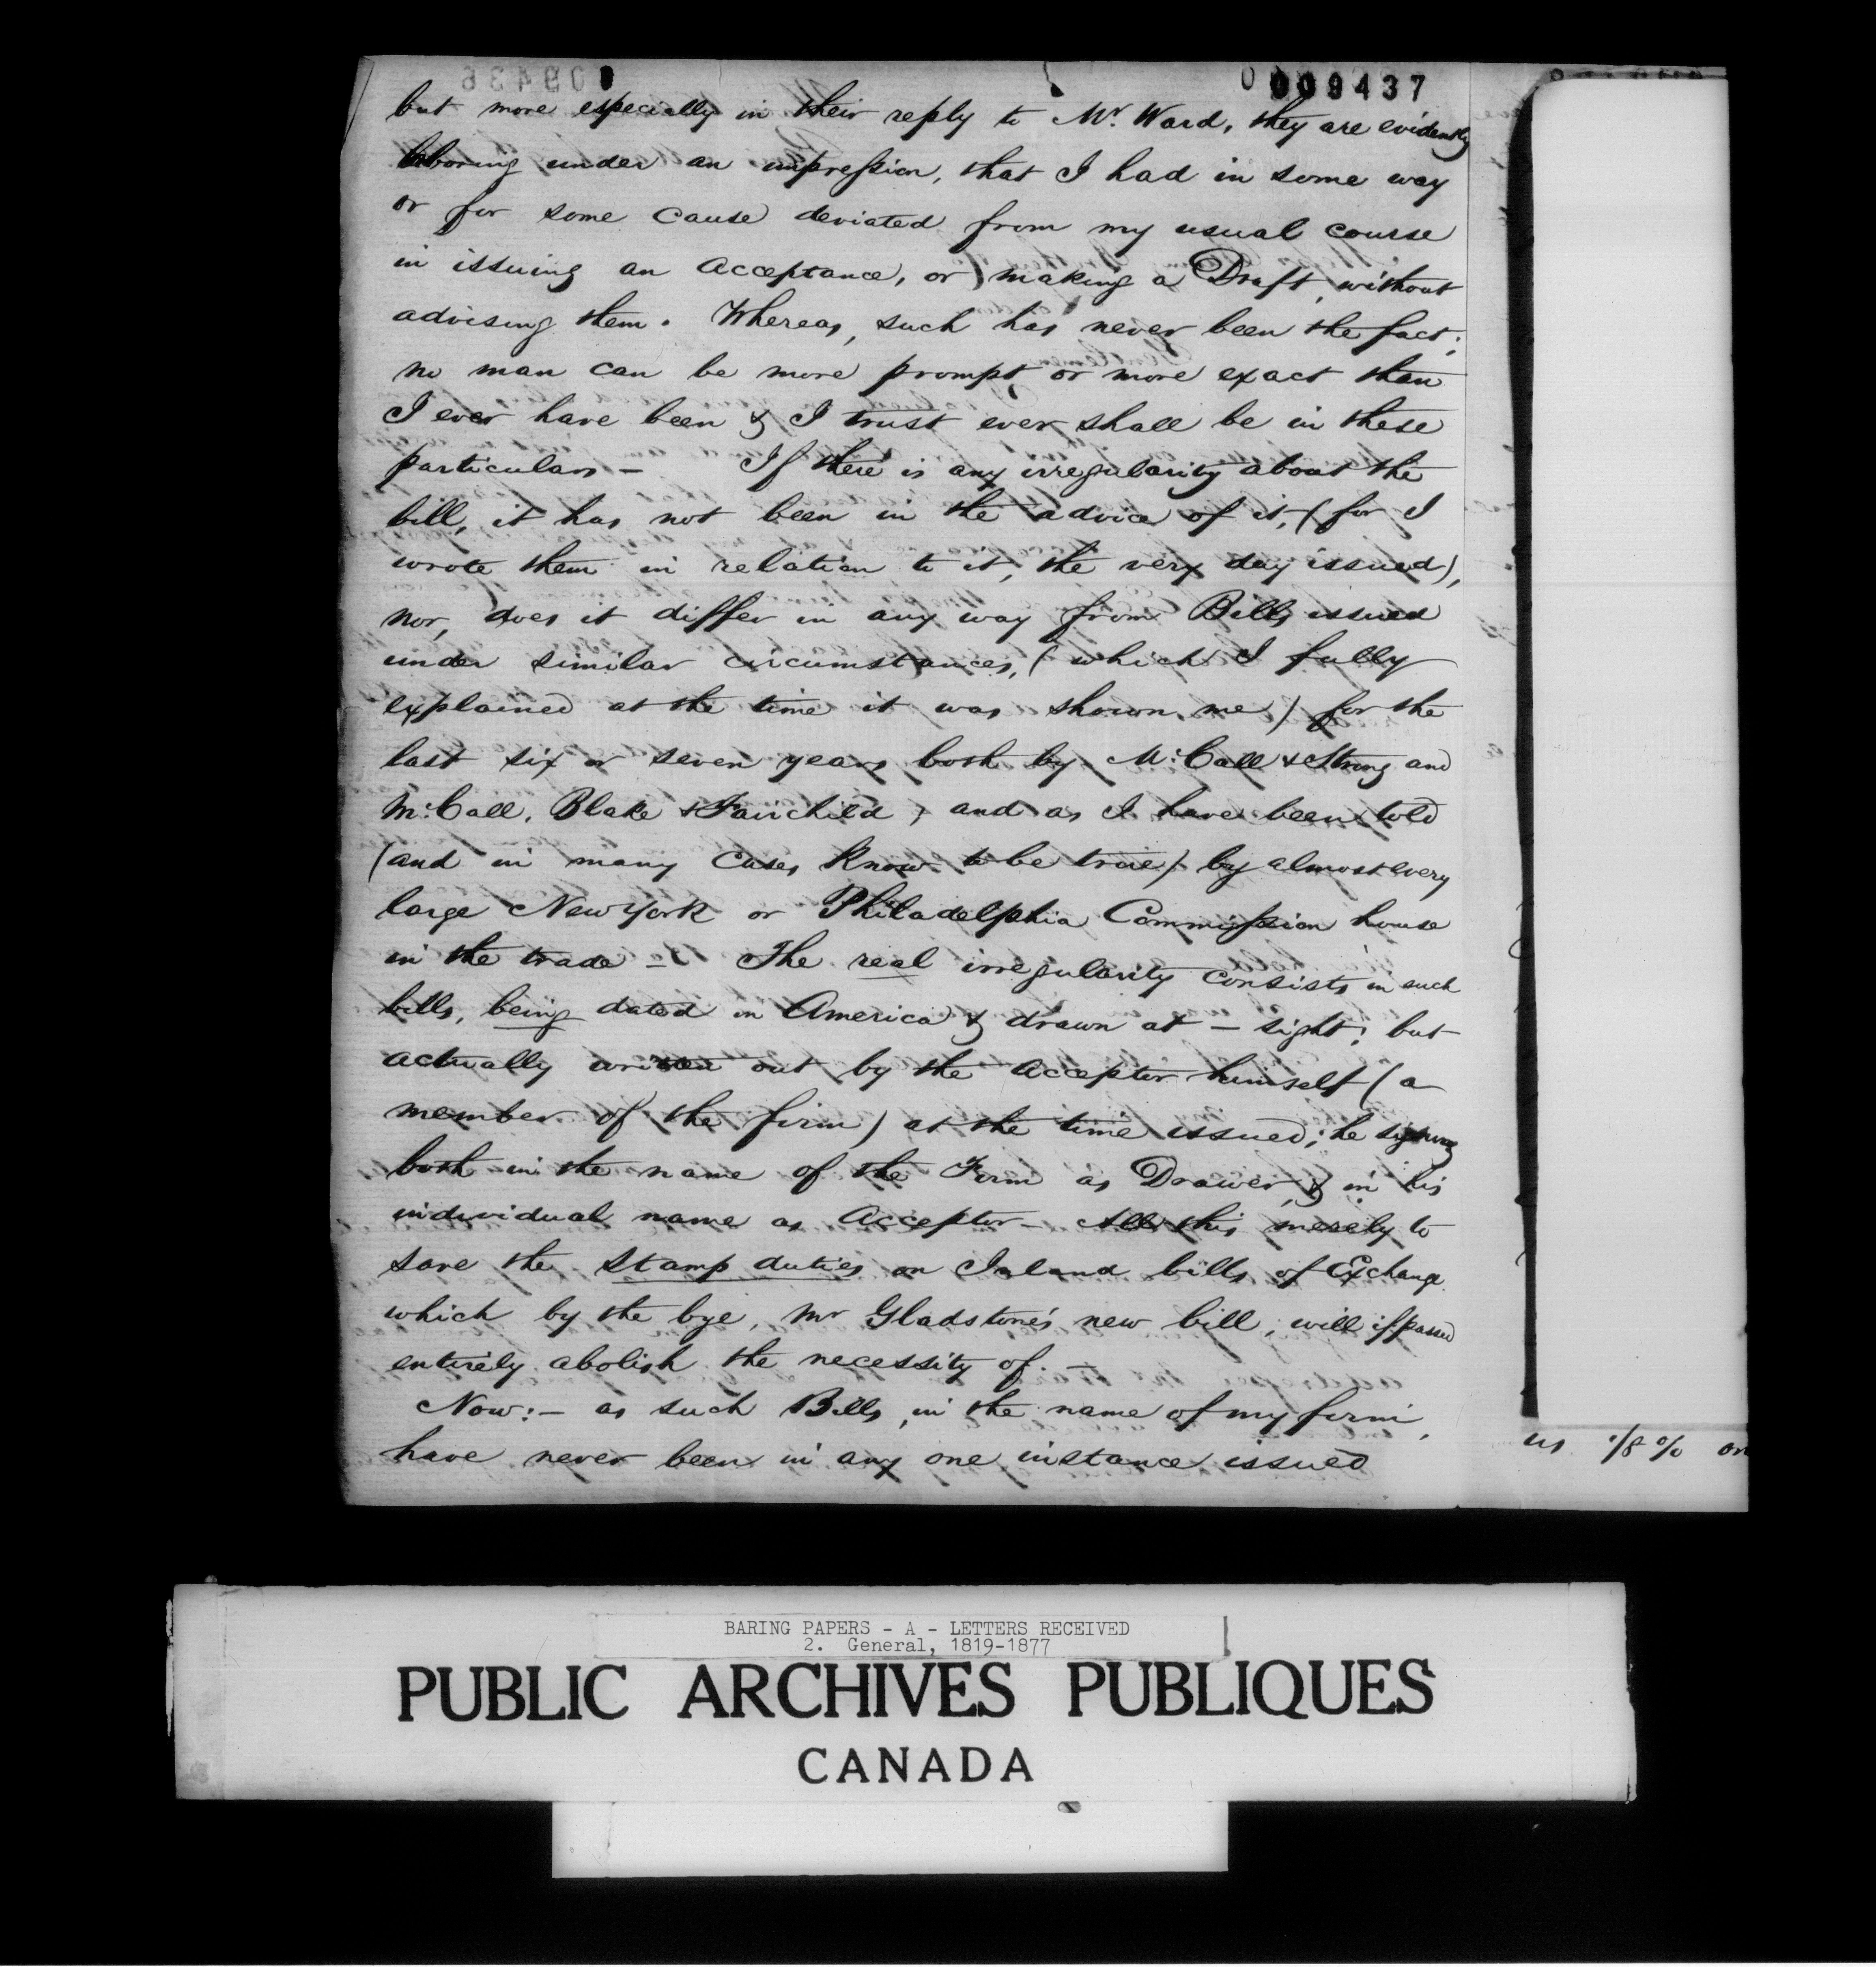 009437
but more especially in their reply to Mr. Ward, they are evidently
laboring under an impression, that I had in some way
or for some cause deviated from my usual course
in issuing an Acceptance, or making a Draft, without
advising them. Whereas, such has never been the fact;
no man can be more prompt or more exact than
I ever have been & I trust ever shall be in these
particulars – If there is any irregularity about the
bill, it has not been in the advice of it, (for I
wrote them in relation to it, the very day issued),
nor, does it differ in any way from Bills issued
under similar circumstances, (which I fully
explained at the time it was shown me) for the
last six or seven years both by McCall & Strong and
McCall, Blake & Fairchild, and as I have been told
(and in many cases know to be true) by almost every
large New York or Philadelphia Commission house
in the trade – The real irregularity consists in such
bills, being dated in America & drawn at – sight; but
actually written out by the Acceptor himself (a
member of the firm) at the time issued; he signing
both in the name of the Firm as Drawer, & in his
individual name as Acceptor – All this merely to
save the stamp duties on Inland bills of Exchange.
which by the bye, Mr Gladstone's new bill, will if passed
entirely abolish the necessity of. –
Now: – as such Bills, in the name of my firm,
have never been in any one instance issued
us 1/8 % on
BARING PAPERS - A - LETTERS RECEIVED
2. General, 1819-1877
PUBLIC ARCHIVES PUBLIQUES
CANADA